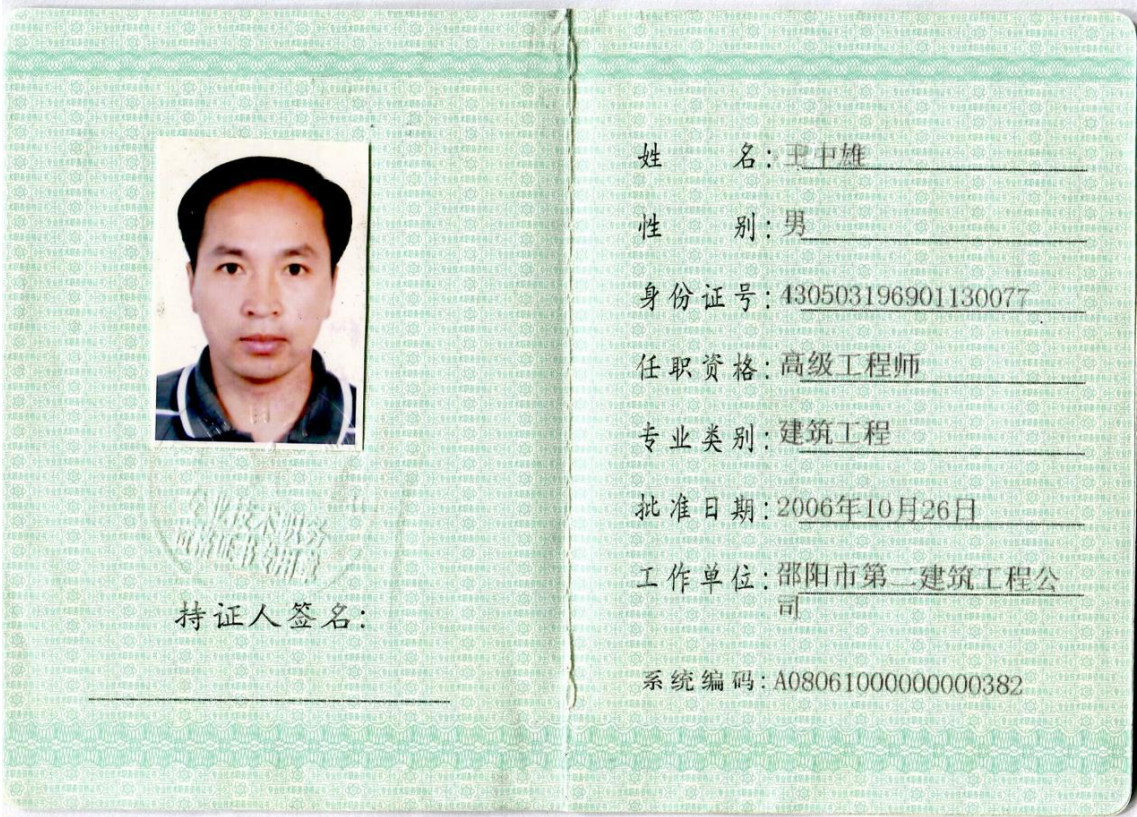 专业技术职务
资格证书专用章
持证人签名：
姓 名：王中雄
性 别：男
身份证号：430503196901130077
任职资格：高级工程师
专业类别：建筑工程
批准日期：2006年10月26日
工作单位：邵阳市第二建筑工程公
司
系统编码：A08061000000000382